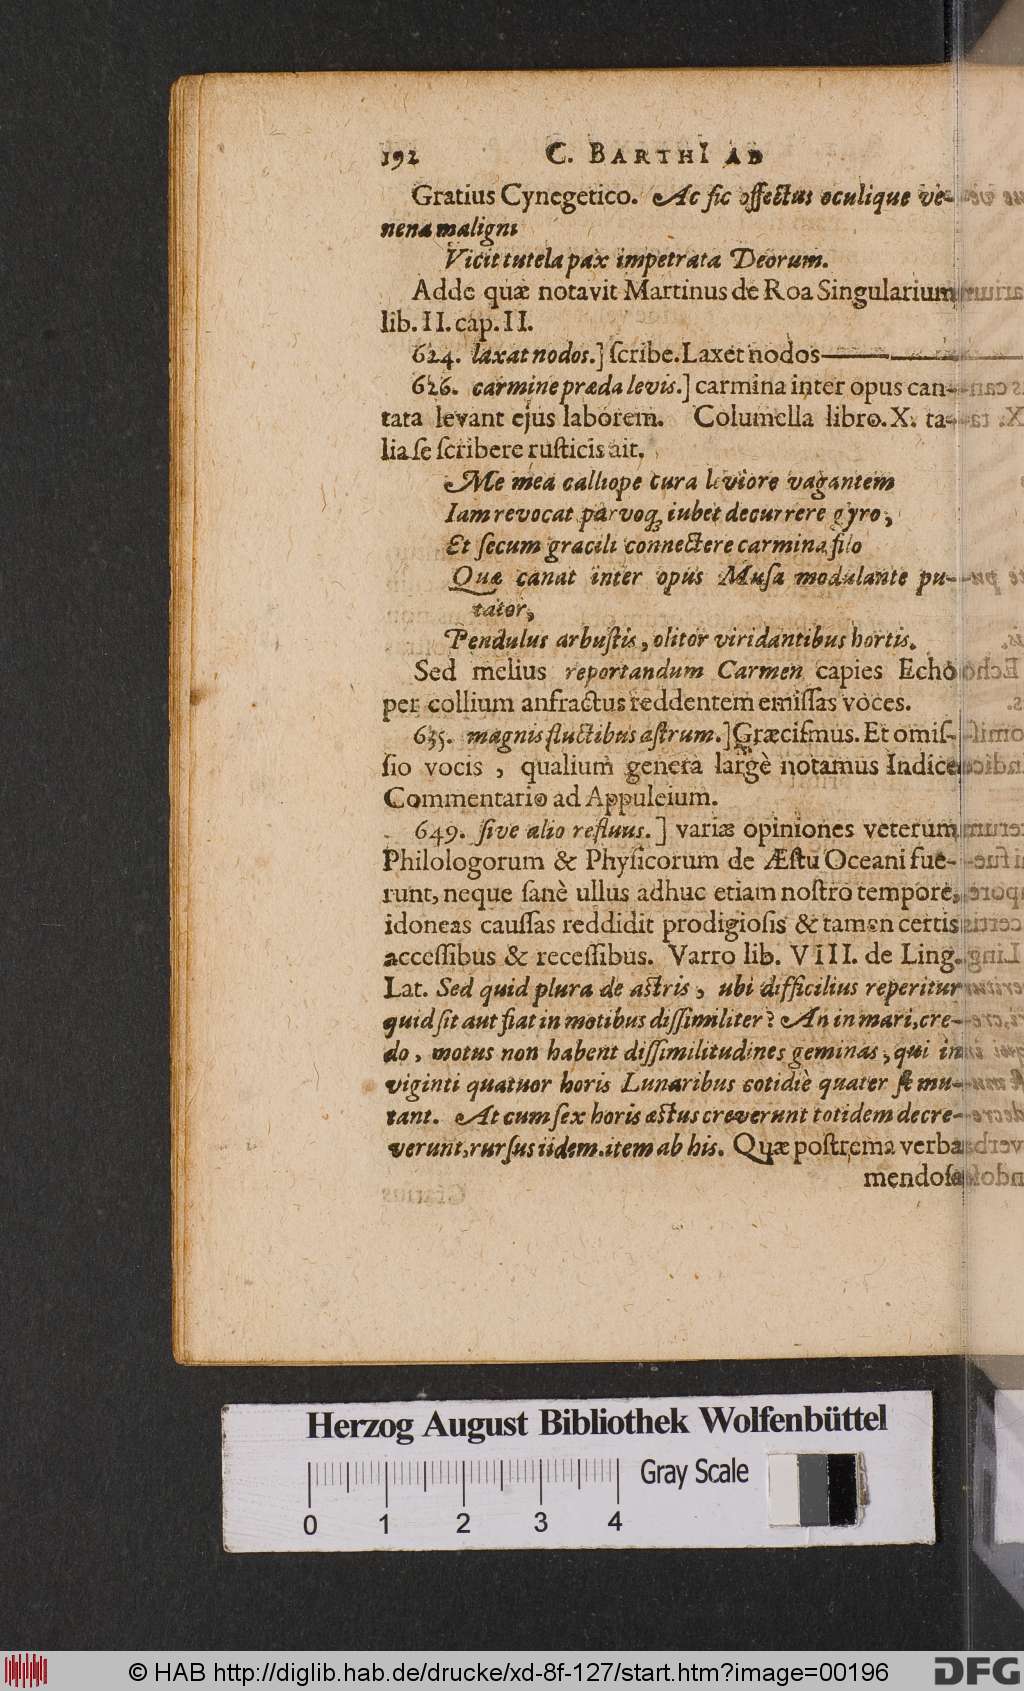 192 C. BARTHI AD
Gratius Cynegetico. Ac sic offectus oculique ve-
nena maligni
Vicit tutela pax impetrata Deorum.
Adde quæ notavit Martinus de Roa Singularium
lib. II. cap. II.
624. laxat nodos.] ſcribe. Laxet nodos
626. carmine præda levis.] carmina inter opus can-
tata levant ejus laborem. Columella libro. X. ta-
lia ſe ſcribere ruſticis ait.
Me mea calliope cura leviore vagantem
Iam revocat parvoq; iubet decurrere gyro,
Et ſecum gracili connectere carmina filo
Quæ canat inter opus Muſa modulante pu-
tator,
Pendulus arbuſtis, olitor viridantibus hortis.
Sed melius reportandum Carmen capies Echo
per collium anfractus reddentem emiſſas voces.
635. magnis fluctibus aſtrum.] Græciſmus. Et omiſ-
ſio vocis, qualium genera largè notamus Indice
Commentario ad Appuleium.
649. ſive alio refluus.] variæ opiniones veterum
Philologorum & Phyſicorum de Æſtu Oceani fue-
runt, neque ſanè ullus adhuc etiam noſtro tempore,
idoneas cauſſas reddidit prodigioſis & tamen certis
acceſſibus & receſſibus. Varro lib. VIII. de Ling.
Lat. Sed quid plura de aſtris, ubi difficilius reperitur
quid ſit aut fiat in motibus diſſimiliter? An in mari, cre-
do, motus non habent diſſimilitudines geminas, qui in
viginti quatuor horis Lunaribus cotidiè quater ſe mu-
tant. At cum ſex horis æſtus creverunt totidem decre-
verunt, rurſus iidem. item ab his. Quæ poſtrema verba
mendoſa
Herzog August Bibliothek Wolfenbüttel
Gray Scale
0 1 2 3 4
© HAB http://diglib.hab.de/drucke/xd-8f-127/start.htm?image=00196
DFG